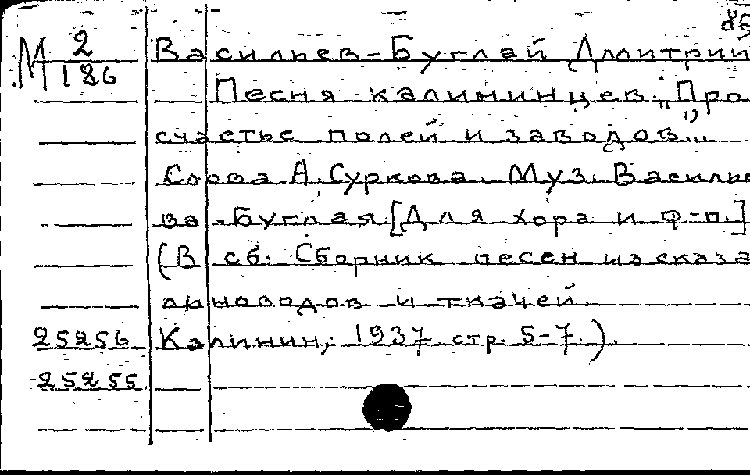 М 2/186 Васильев-Буглай Дмитрий
Песня калининцев. "Про
счастье полей и заводов"..
Слова А. Суркова. Муз. Василье
ва-Буглая. [Для хора и ф-п.]
(В сб.: Сборник песен и сказа
льноводов и ткачей
25256 Калинин, 1937 стр. 5-7.)
25255